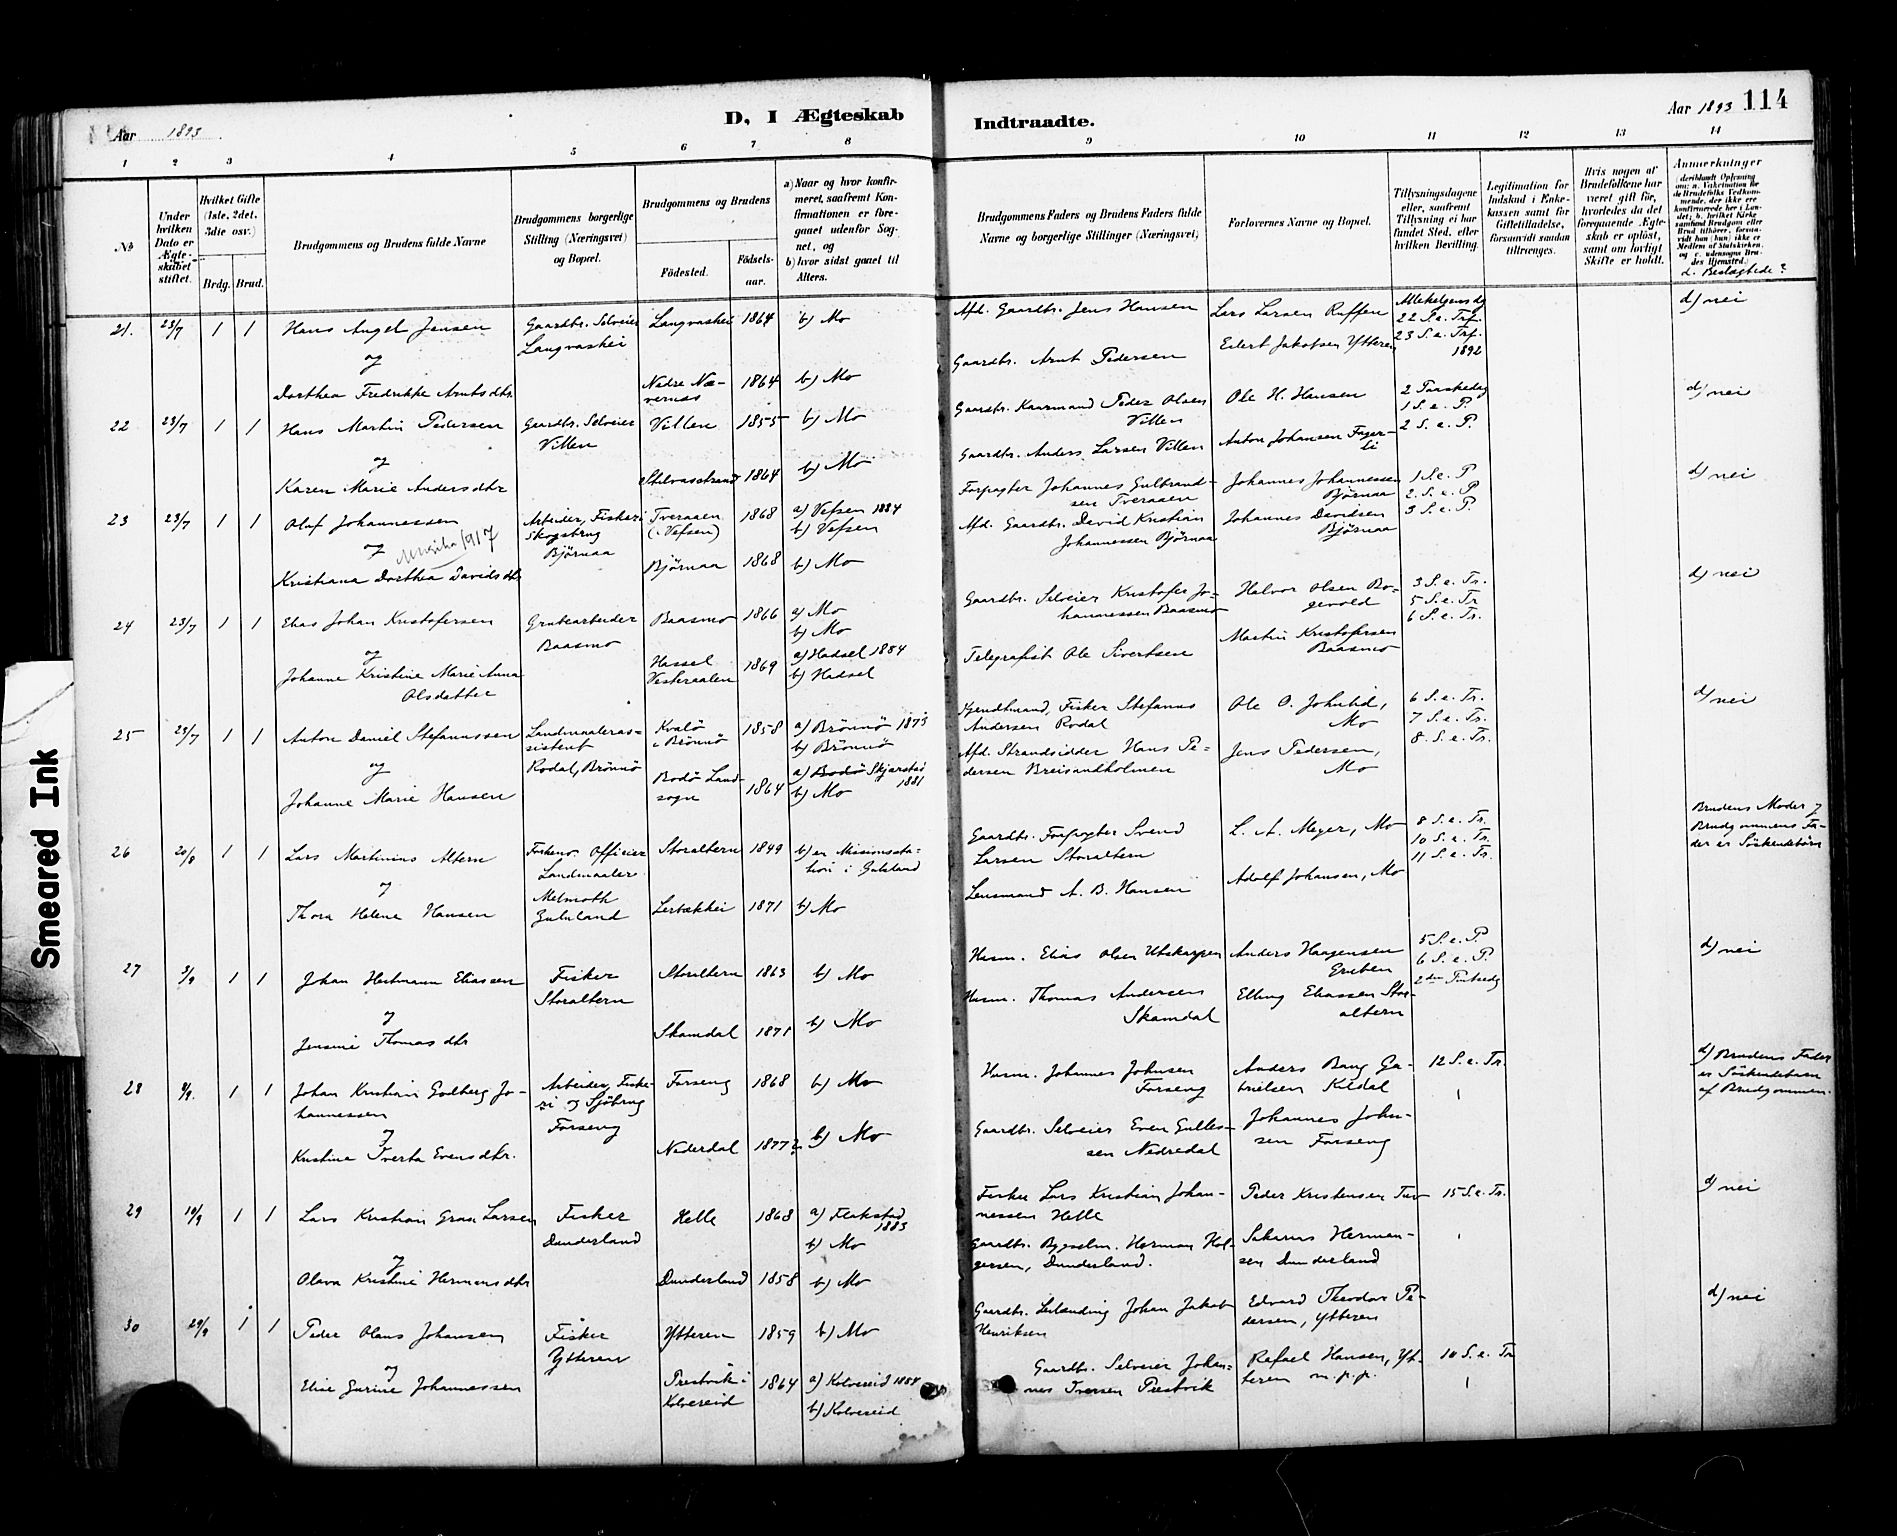 Aar 1893
D, I Ægteskab
Indtraadte.
Aar 1893 114
1 2 3 4 5 6 7 8 9 10 11 12 13 14
No
Under hvilken Dato er Ægteskabet stiftet.
Hvilket Gifte (1ste, 2det, 3die osv.)
Brdg. Brud.
Brudgommens og Brudens fulde Navne
Brudgommens borgerlige Stilling (Næringsvei) og Bopæl.
Brudgommens og Brudens
Fødested.
Fødselsaar.
a) Naar og hvor konfirmeret, saafremt Konfirmationen er foregaaet udenfor Sognet, og
b) hvor sidst gaaet til Alters.
Brudgommens Faders og Brudens Faders fulde Navne og borgerlige Stillinger (Næringsvei)
Forlovernes Navne og Bopæl.
Tillysningsdagene eller, saafremt Tillysning ei har fundet Sted, efter hvilken Bevilling.
Legitimation for Indskud i Enkekassen samt for Giftetilladelse, forsaavidt saadan tiltrænges.
Hvis nogen af Brudefolkene har været gift før, hvorledes da det foregaaende Ægteskab er opløst, samt om lovligt Skifte er holdt.
Anmerkninger
d. Beslægtede?
21. 23/7 1 1 Hans Angel Jensen
og
Dorthea Fredrikke Arntsdtr.
Gaardbr. Selveier
Langvashei
Langvashei 1864 b) Mo
Nedre Næ-
vernes 1864 b) Mo
Afd. Gaardbr. Jens Hansen
Gaardbr. Arnt Pedersen
Lars Larsen Ruffen
Edert Jakobsen Ytteren
Allehelgensdg
22 S. e. Trf.
23 S. e. Trf.
1892
d) nei
22 23/7 1 1 Hans Martin Pedersen
og
Karen Marie Andersdtr
Gaardbr. Selveier
Villen
Villen 1855 b) Mo
Stilvasstrand 1864 b) Mo
Gaardbr. Kaarmand Peder Olsen
Villen
Gaardbr. Anders Larsen Villen
Ole H. Hansen
Anton Johansen Fager-
li
2 Paaskedag
1 S. e. P.
2 S. e. P.
d) nei
23 23/7 1 1 Oluf Johannessen
og
1917
Kristiana Dorthea Davidsdtr
Arbeider, Fiskeri
Skogsbrug
Bjørnaa
Tveraaen
(i Vefsen) 1868 a) Vefsen 1884
b) Vefsen
Bjørnaa 1868 b) Mo
Forpagter Johannes Gulbrand-
sen Tveraaen
Afd. Gaardbr. David Kristian
Johannessen Bjørnaa
Johannes Johannessen
Bjørnaa
Johannes Davidsen
Bjørnaa
1 S. e. P
2. S. e. P
3 S. e. P.
d) nei
24 23/7 1 1 Elias Johan Kristofersen
og
Johanne Kristine Marie Anna
Olsdatter
Grubearbeider
Baasmo
Baasmo 1866 a) Mo
b) Mo
Hassel
Vesteraalen 1869 a) Hadsel 1884
b) Hadsel
Gaardbr. Selveier Kristofer Jo-
hannessen Baasmo
Telegrafist Ole Sivertsen
Halvor Olsen Bo-
gevold
Martin Kristofersen
Baasmo
3 S. e. Tr.
5 S. e. Tr
6 S. e. Tr.
d) nei
25 23/7 1 1 Anton Daniel Stefanussen
og
Johanne Marie Hansen
Landmaaleras-
sistent
Rodal, Brønnø
Kvalø
i Brønnø 1858 a) Brønnø 1873
b) Brønnø
Bodø Land-
sogn 1864 a) Bodø Skjærstad
1881
b) Mo
Fisker Stefanus
Andersen Rodal
Afd. Strandsidder Hans Pe-
dersen Breisandholmen
Ole O. Johnlid,
Mo
Jens Pedersen,
Mo
6 S. e. Tr.
7 S. e. Tr.
8. S. e. Tr.
d) nei
26 20/8 1 1 Lars Martinius Altern
og
Thora Helene Hansen
Officier
Landmaaler
Melmoth
Zululand
Storaltern 1849 b) en Missionssta-
tion i Zululand
1871 b) Mo
Gaardbr. Forpagter Svend
Larsen Storaltern
Lensmand A. B. Hansen
L. A. Meyer, Mo
Adolf Johansen, Mo
8 S. e. Tr.
10 S. e. Tr.
11 S. e. Tr.
Brudens Moder og
Brudgommens Fa-
der er Søskendebørn
27 3/9 1 1 Johan Hartmann Eliassen
og
Jensine Thomasdtr
Fisker
Storaltern
Storaltern 1863 b) Mo
Skamdal 1871 b) Mo
Husm. Elias Olsen Utskarpen
Husm. Thomas Andersen
Skamdal
Anders Haagensen
Gruben
Elling Eliassen Stor-
altern
5 S. e. P
6 S. e. P
2den Pintsedg
d) nei
28 1 1 Johan Kristian Godberg Jo-
hannessen
og
Kristine Iverta Evensdtr.
Arbeider, Fiske-
ri og Sjøbrug
Forseng
Forseng 1868 b) Mo
Nederdal 1877 b) Mo
Husm. Johannes Johnsen
Forseng
Gaardbr. Selveier Even Gulles-
sen Nedredal
Anders Bang Ga-
brielsen Kildal
Johannes John-
sen Forseng
12 S. e. Tr.
d) Brudens Fader
er Søskendebarn
af Brudgommen.
29 10/9 1 1 Lars Kristian Gran Larsen
og
Olava Kristine Hermansdtr
Fisker
Dunderland
Helle 1868 a) Flakstad
1883
b) Mo
Dunderland 1858 b) Mo
Fisker Lars Kristian Johan-
nessen Helle
Gaardbr. Bygselm. Herman Hol-
gersen, Dunderland.
Peder Kristensen
Sakarias Herman-
sen Dunderland
15 S. e. Tr.
d) nei
30 24/9 1 1 Peder Olaus Johansen
og
Elise Gurine Johannessen
Fisker
Ytteren
Ytteren 1859 b) Mo
Prestvik i
Kolvereid 1864 a) Kolvereid 1884
b) Kolvereid
Gaardbr. Leilænding Johan Jakob
Henriksen
Gaardbr. Selveier Johan-
nes Iversen Prestvik
Edvard Theodor Pe-
dersen, Ytteren
Refael Hansen, Yt-
teren m.p.p.
10 S. e. Tr
d) nei
Smeared Ink